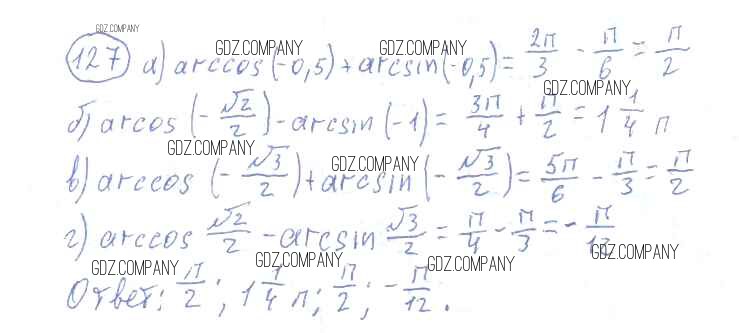 GDZ.COMPANY
127 а) arccos(-0,5) + arcsin(-0,5) = 2π/3 - π/6 = π/2
GDZ.COMPANY GDZ.COMPANY
GDZ.COMPANY
б) arcos(-√2/2) - arcsin(-1) = 3π/4 + π/2 = 1 1/4 π
GDZ.COMPANY
GDZ.COMPANY
в) arccos(-√3/2) + arcsin(-√3/2) = 5π/6 - π/3 = π/2
г) arccos √2/2 - arcsin √3/2 = π/4 - π/3 = -π/12
GDZ.COMPANY GDZ.COMPANY GDZ.COMPANY GDZ.COMPANY
Ответ: π/2; 1 1/4 π; π/2; -π/12.